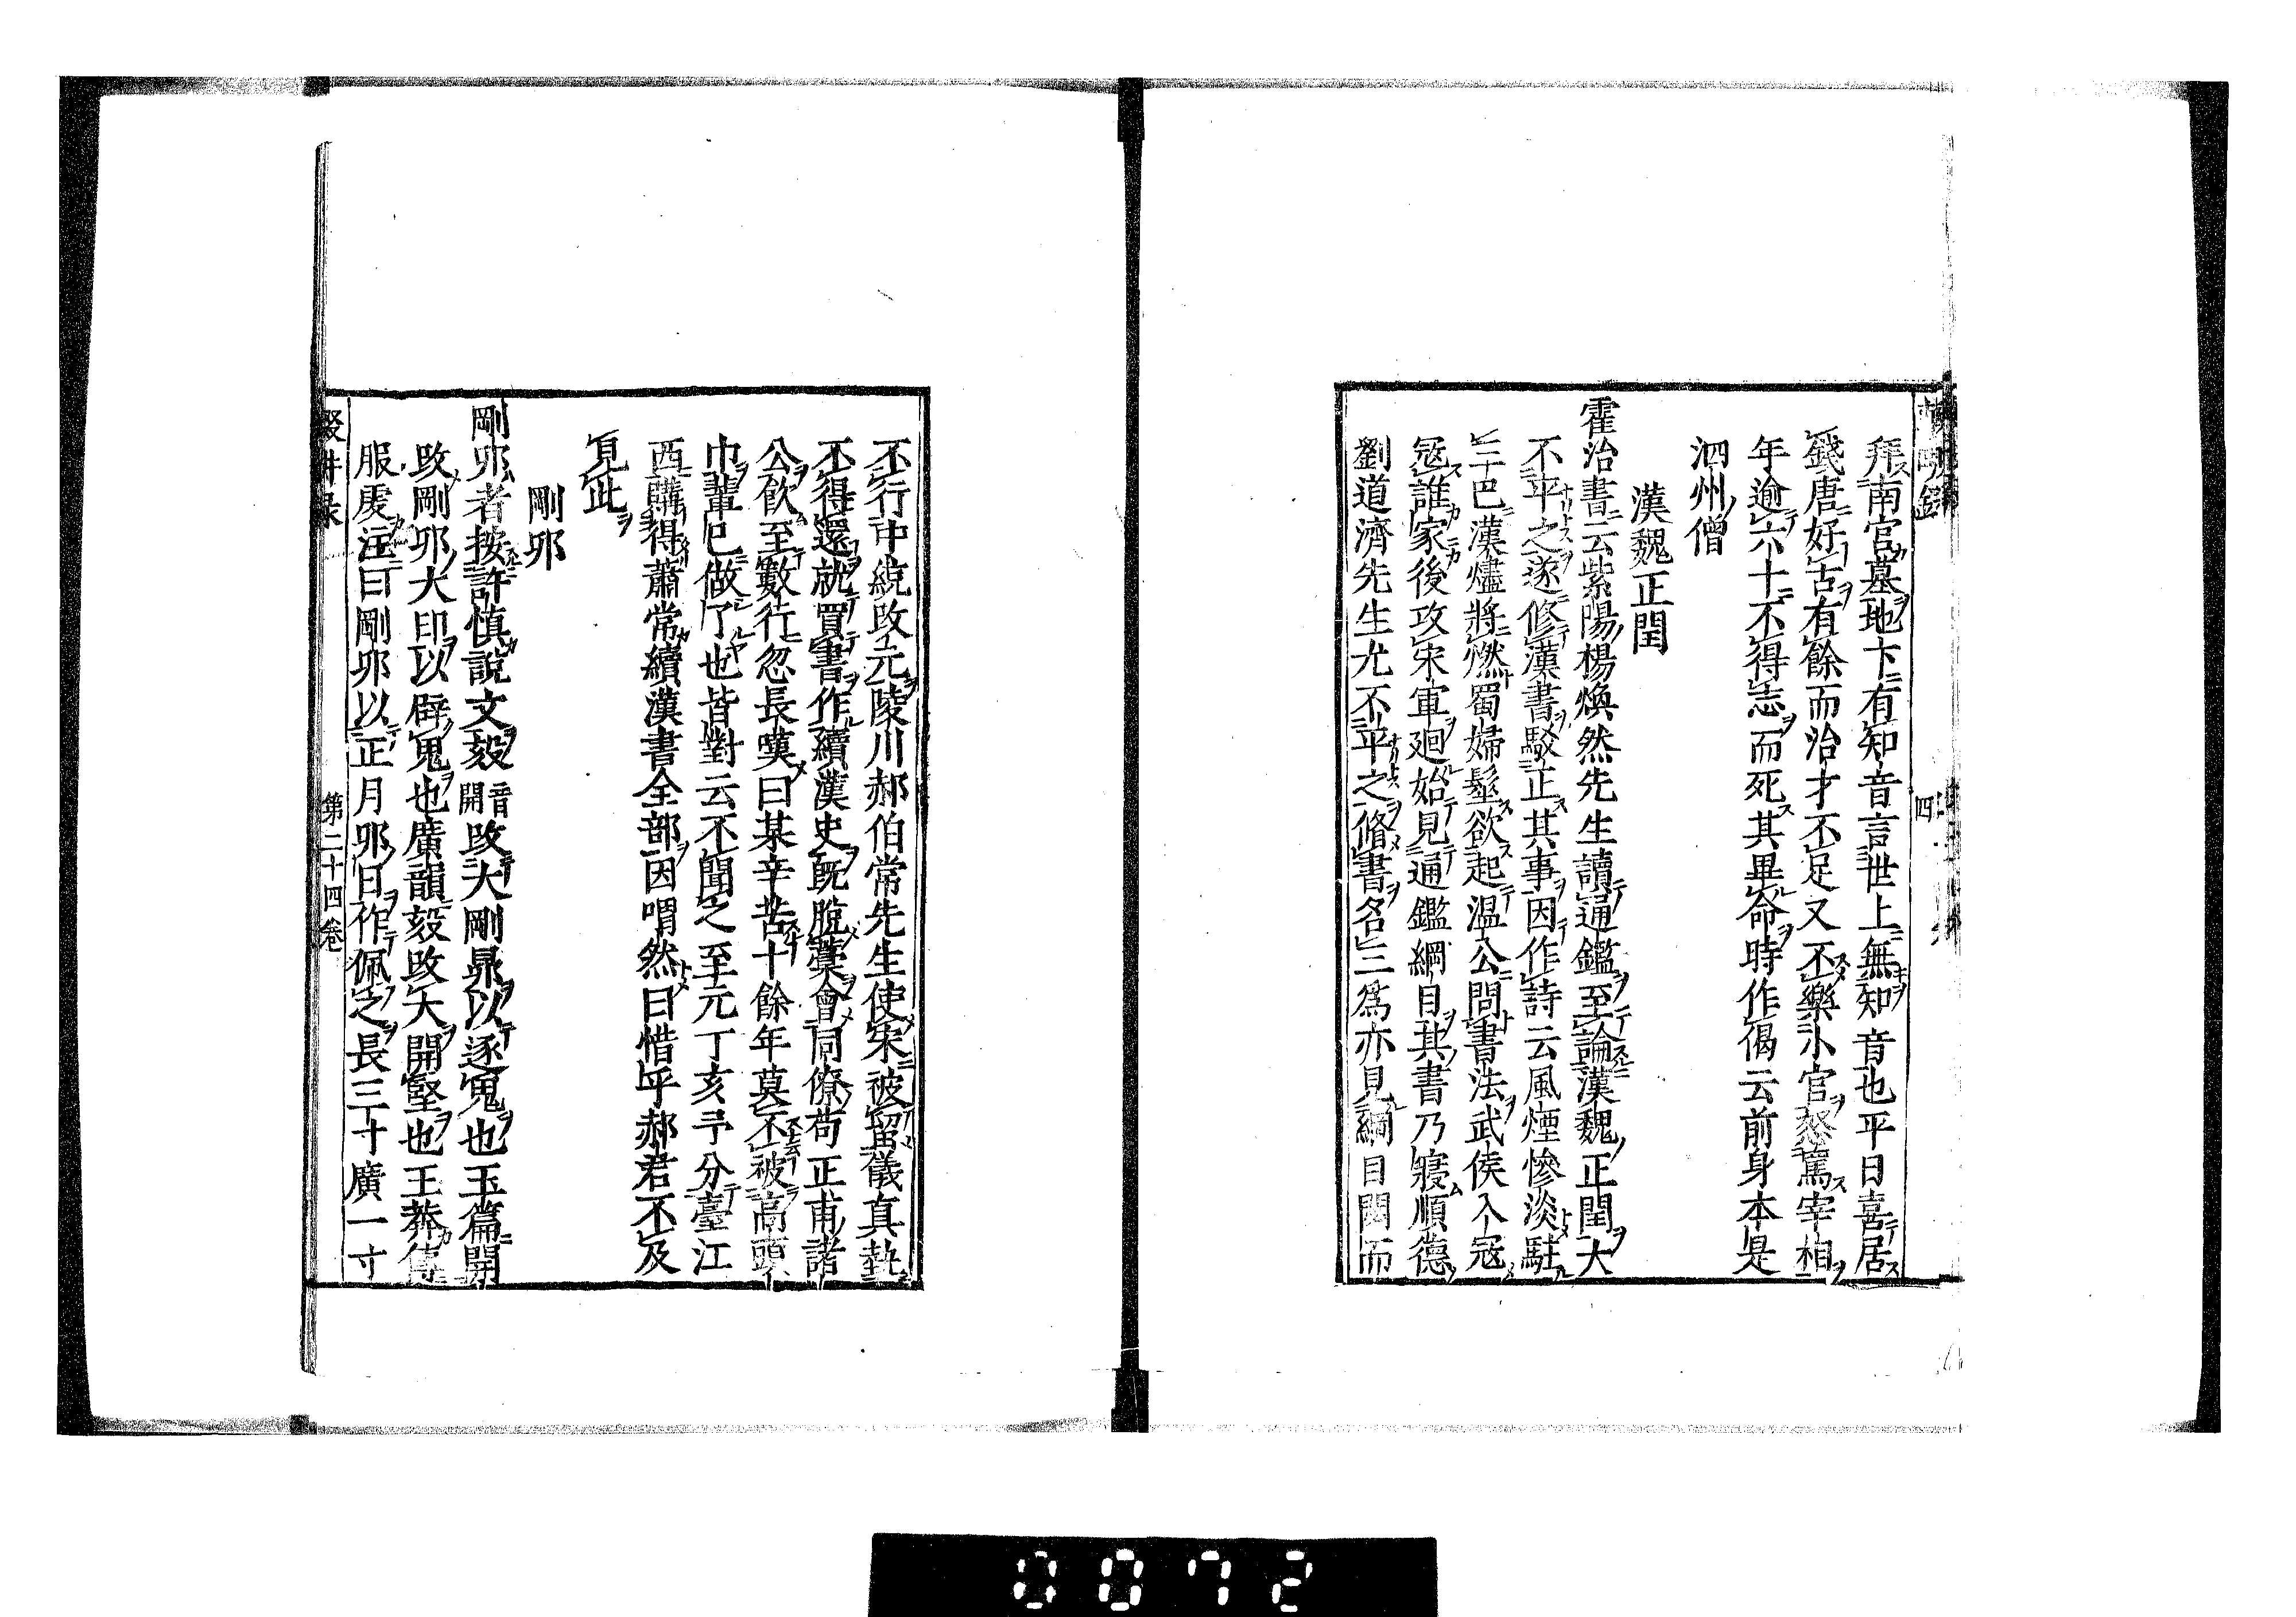 拜南宮墓地下有知音言世上無知音也平日喜居
錢唐好古有餘而治才不足又不樂小官怒罵宰相
年逾六十不得志而死其畢命時作偈云前身本是
泗州僧
漢魏正閏
霍治書云紫陽楊煥然先生讀通鑑至論漢魏正閏大
不平之遂修漢書駁正其事因作詩云風煙慘淡駐
三巴漢燼將燃蜀婦髽欲起溫公問書法武侯入寇
寇誰家後攻宋軍廻始見通鑑綱目其書乃寢順德
劉道濟先生尤不平之脩書名三爲亦見綱目閣而
不行中統改元陵川郝伯常先生使宋被留儀真執
不得還就買書作續漢史既脫藁會同僚苟正甫諸
公飲至數行忽長嘆曰某辛苦十餘年莫不被高頭
巾輩已做了也皆對云不聞之至元丁亥予分臺江
西購得蕭常續漢書全部因喟然曰惜乎郝君不及
見此
剛卯
剛卯者按許慎說文毅音開改大剛卯以逐鬼也玉篇開
改剛卯大印以辟鬼也廣韻毅改大開堅也王莽傳
服虔注曰剛卯以正月卯日作佩之長三寸廣一寸
輟耕录
第二十四卷
四
0072